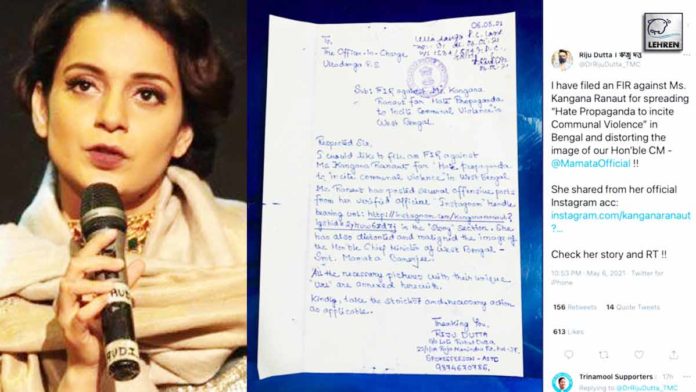 LEHREN
06.05.21
To
The Officer-In-Charge
Ultadanga P.S
Sub: FIR against Ms. Kangana
Ranaut for Hate Propaganda
to incite Communal Violence in
West Bengal
Respected Sir,
I would like to file an FIR against
Ms. Kangana Ranaut for 'Hate Propaganda
to incite communal violence' in West Bengal
Ms. Ranaut has posted several offensive posts
from her verified official 'Instagram' Handle
bearing url:
in the "Story" section. She
has also distorted and maligned the image of
the Hon'ble Chief Minister of West Bengal -
Smt. Mamata Banerjee.
All the necessary pictures with their unique
'url' are annexed herewith.
Kindly, take the strictest and necessary action
as applicable.
Thanking You,
RIJU DUTTA
SPOKESPERSON - AITC
Riju Dutta । ঋজু দত্ত
@DrRijuDutta_TMC
I have filed an FIR against Ms.
Kangana Ranaut for spreading
"Hate Propaganda to incite
Communal Violence" in
Bengal and distorting the
image of our Hon'ble CM -
@MamataOfficial !!
She shared from her official
Instagram acc:
instagram.com/kanganaranaut?
...
Check her story and RT !!
10:53 PM · May 6, 2021 · Twitter for
iPhone
156 Retweets 14 Quote Tweets
613 Likes
Trinamool Supporters 17h
Replying to @DrRijuDutta_TMC